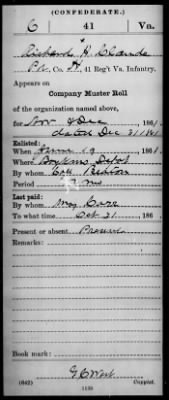 (CONFEDERATE.)
C 41 Va.
Richard H.
Pvt, Co. H, 41 Reg't Va. Infantry.
Appears on
Company Muster Roll
of the organization named above,
for Nov & Dec, 1861.
dated Dec 31/61
Enlisted:
When June 19, 1861.
Where Boykins Depot
By whom Col
Period
Last paid:
By whom Maj Carr
To what time Oct 31, 1861.
Present or absent Present
Remarks:
Book mark:
(642) Copyist.